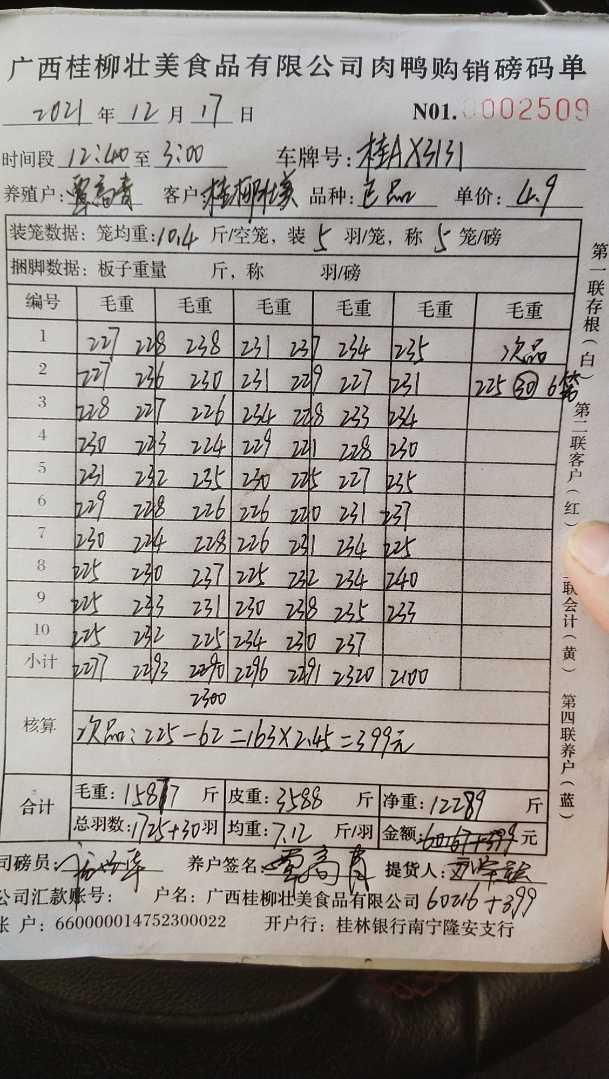 广西桂柳壮美食品有限公司肉鸭购销磅码单
2021 年 12 月 17 日 N01. 0002509
时间段 12:40 至 3:00 车牌号: 桂AX3131
养殖户: 覃高青 客户: 桂柳壮美 品种: 正品 单价: 4.9
装笼数据: 笼均重: 10.4 斤/空笼, 装 5 羽/笼, 称 5 笼/磅
捆脚数据: 板子重量 斤, 称 羽/磅
编号 毛重 毛重 毛重 毛重 毛重 毛重
1 227 228 238 231 237 234 235 次品
2 227 236 230 231 229 227 231 225 30 6笼
3 228 227 226 234 228 233 234
4 230 223 224 229 221 228 230
5 231 232 235 230 225 227 235
6 229 228 226 226 220 231 237
7 230 224 228 226 231 234 225
8 225 230 237 225 232 234 240
9 225 233 231 230 238 235 233
10 225 232 225 234 230 237
小计 2277 2293 2290 2296 2291 2320 2100
2300
核算 次品: 225-62=163×2.45=399元
合计 毛重: 15877 斤 皮重: 3588 斤 净重: 12289 斤
总羽数: 1725+30 羽 均重: 7.12 斤/羽 金额: 60167+399 元
司磅员: 养户签名: 覃高青 提货人:
公司汇款账号: 户名: 广西桂柳壮美食品有限公司 60216+399
账 户: 660000014752300022 开户行: 桂林银行南宁隆安支行
第一联存根(白)
第二联客户(红)
联会计(黄)
第四联养户(蓝)